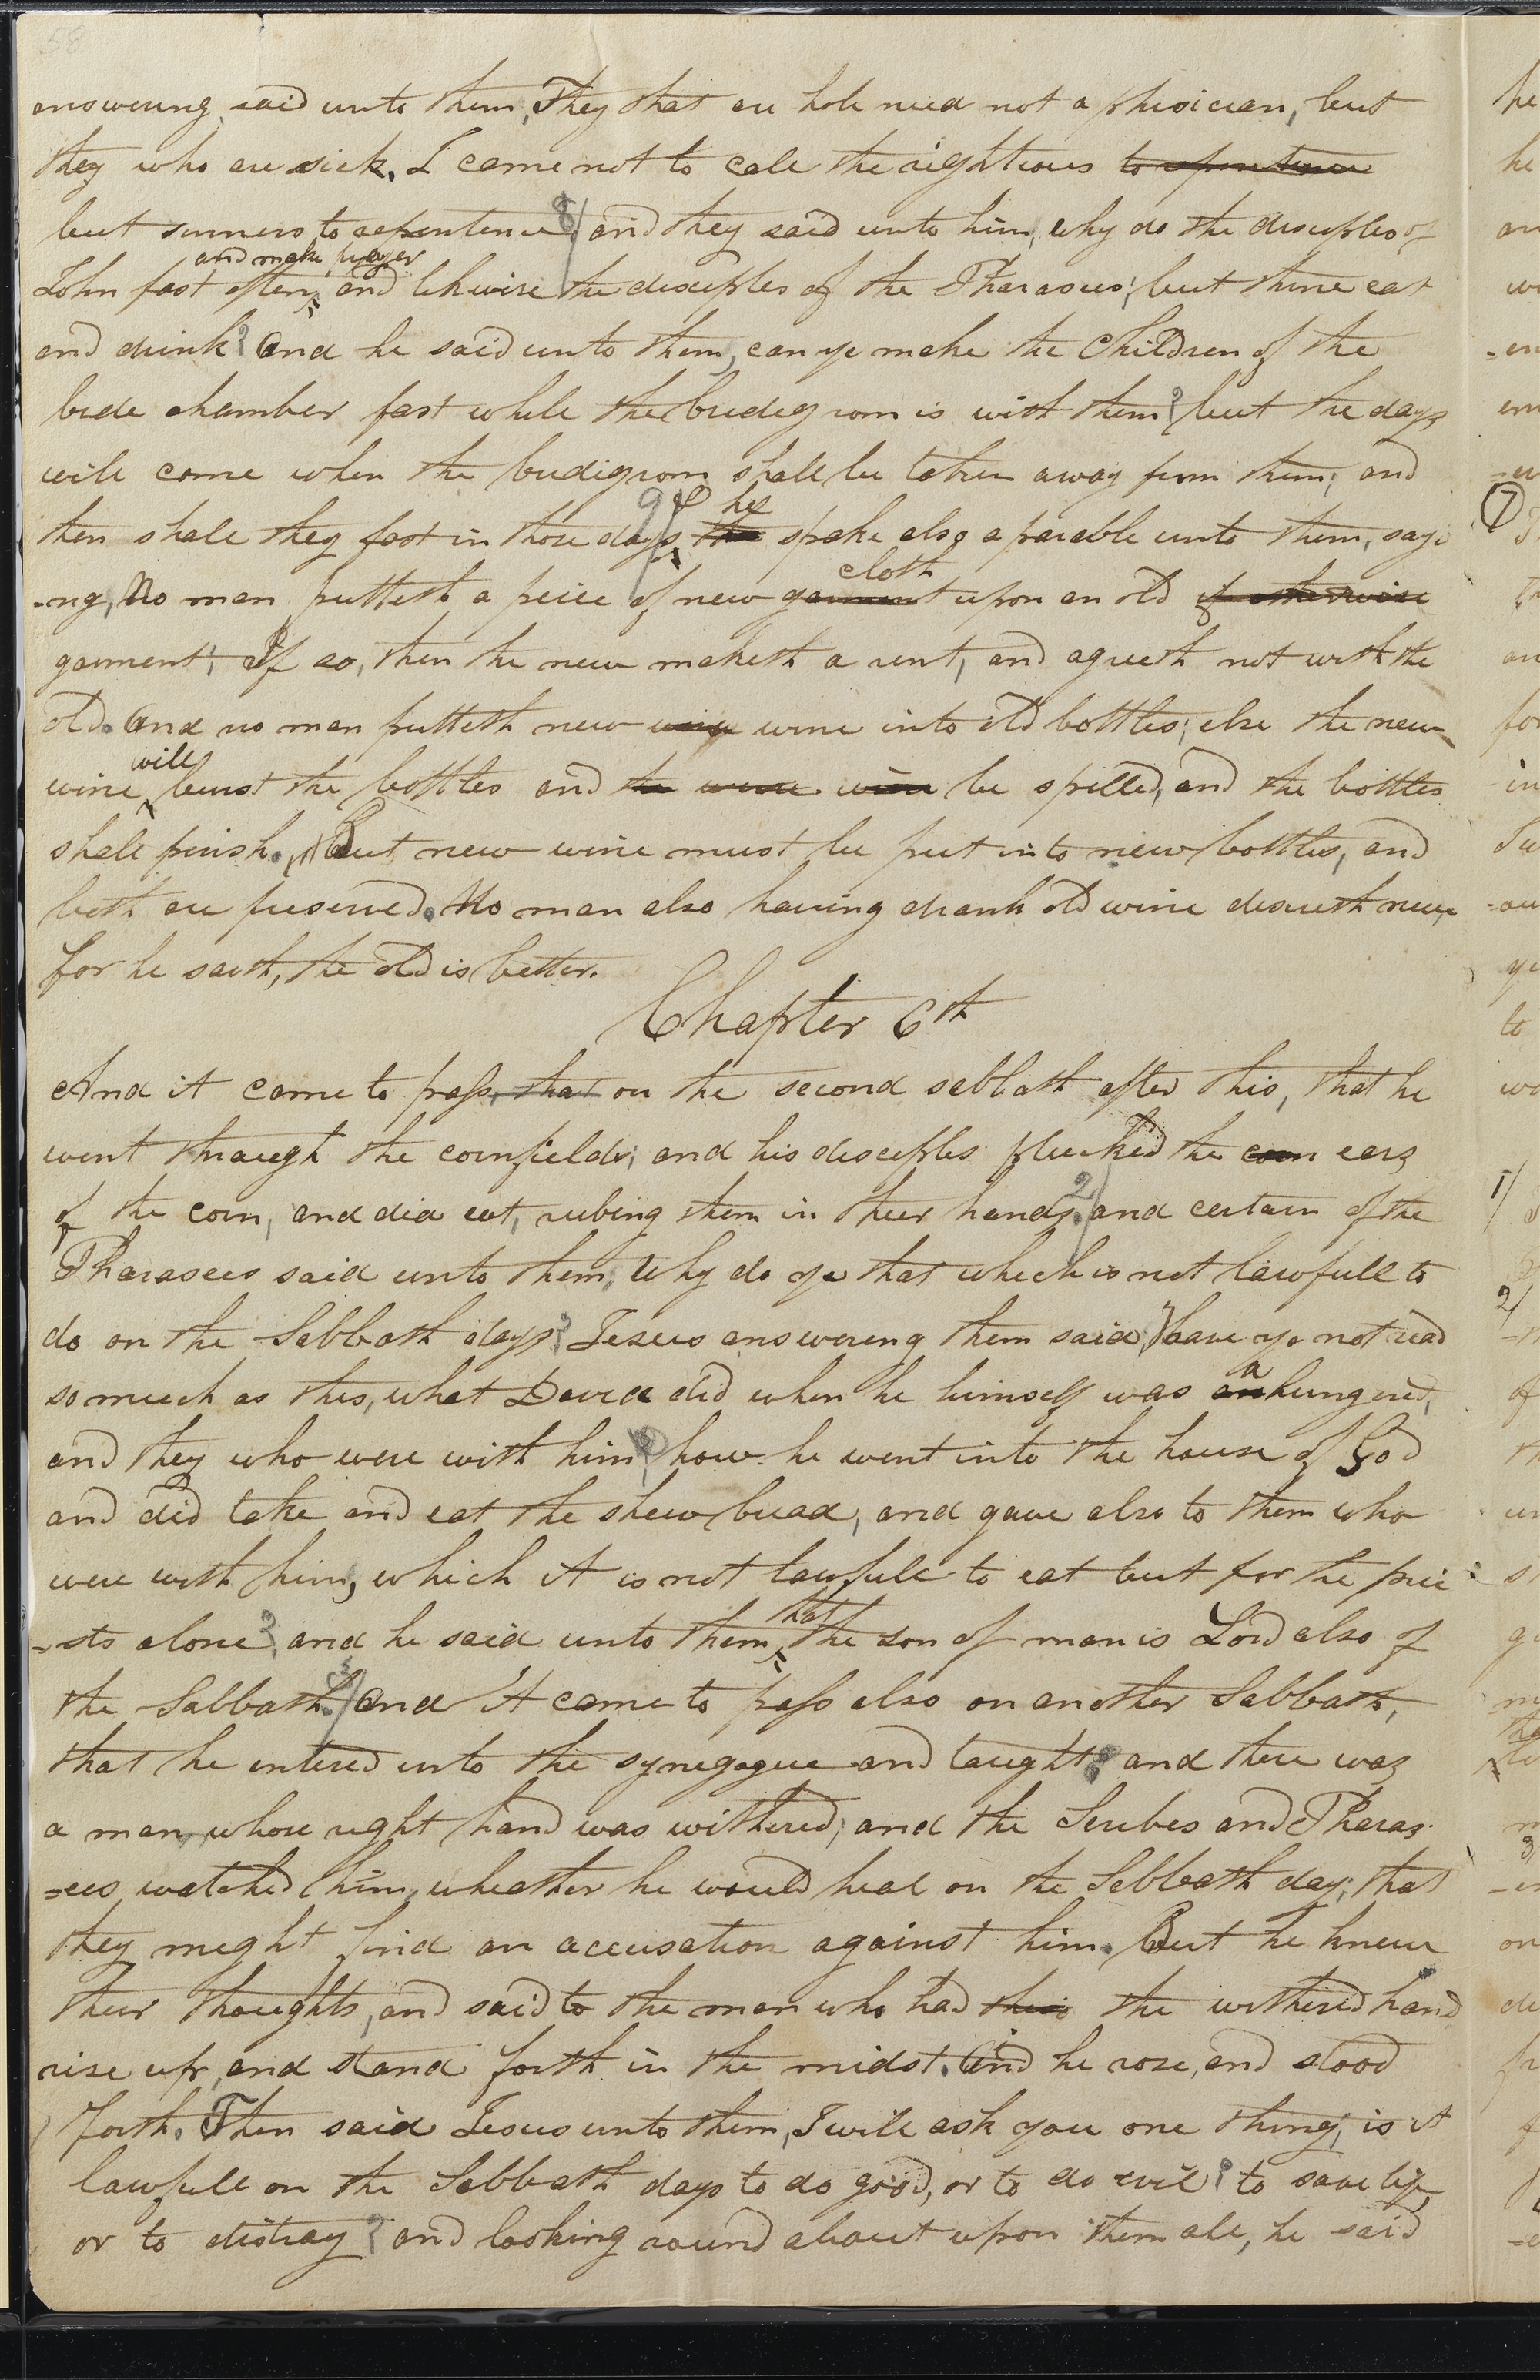 58
answering, said unto them, They that are hole need not a phisician, but
they who are sick. I came not to call the rightious to repentance
but sinners to repentence. 8/ and they said unto him, why do the disciples of
and make prayer
John fast often, and likwise the disciples of the Pharasees; but thine eat
and drink? And he said unto them, can ye make the Children of the
bride chamber fast while the bridegroom is with them? but the days
will come when the bridigroom shall be taken away from them; and
then shall they fast in those days, 9/ & he the spake also a parable unto them, sayi
-ng, No man putteth a peice of new garment cloth upon an old if otherwise
garment; If so, then the new maketh a rent, and agreeth not with the
old. And no man putteth new wine wine into old bottles; else the new
will
wine burst the bottles and the wine will be spilled, and the bottles
shall perish. But new wine must be put into new bottles, and
both are preserved. No man also having drank old wine desireth new,
for he saith, the old is better.
Chapter 6th
And it came to pass, that on the second sabbath after this, that he
went through the cornfields; and his disciples plucked the corn ears
of the corn, and did eat, rubing them in their hands. 2/ and certain of the
Pharasees said unto them, Why do ye that which is not lawfull to
do on the Sabbath days? Jesus answering them said, Have ye not read
so much as this, what David did when he himself was an a hungered,
and they who were with him, how he went into the house of God
and did take and eat the shew bread, and gave also to them who
were with him, which it is not lawfull to eat but for the prie
-sts alone? and he said unto them, that the son of man is Lord also of
the Sabbath. 3/ And it came to pass also on another Sabbath,
that he entered into the synagogue and taught; and there was
a man, whose right hand was withered; and the Scribes and Pharas
=ees, watched him, wheather he would heal on the Sabbath day; that
they might find an accusation against him. But he knew
their thoughts, and said to the man who had this the withered hand
rise up, and stand forth in the midst. And he rose, and stood
forth. Then said Jesus unto them, I will ask you one thing; is it
lawfull on the Sabbath days to do good, or to do evil? to save life,
or to distroy? and looking round about upon them all, he said